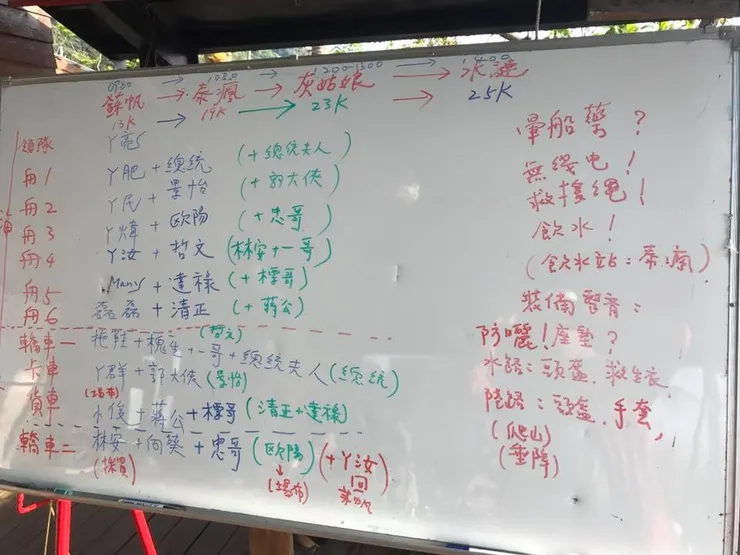 0900 → 1030 → 1200-1300 → 1400
蘇帆 → 泰瘋 → 灰姑娘 → 水漣
13K → 19K → 23K → 25K
領隊 丫亮
舟1 丫肥 + 總統 (+總統夫人)
舟2 丫民 + 景怡 (+郭大俠)
舟3 丫煒 + 歐陽 (+忠哥)
舟4 丫汝 + 哲文 (林安+一哥)
舟5 Many + 達祿 (+標哥)
舟6 磊磊 + 清正 (+蔣公)
海
轎車一 拖鞋 + 槐生 + 一哥 + 總統夫人 (哲文)
卡車 丫群 + 郭大俠 (景怡) (總統)
貨車 (場布) 小俊 + 蔣公 + 標哥 (清正+達祿)
轎車二 林安 + 向葵 + 忠哥 (歐陽) (+丫汝)
(採買) (場布) 回
暈船藥?
無線电!
救援绳!
飲水!
(飲水站:泰瘋)
裝備聲音:
防曬!座墊?
水路:頭盔.救生衣
陸路:頭盔.手套,
(爬山)
(垂降)